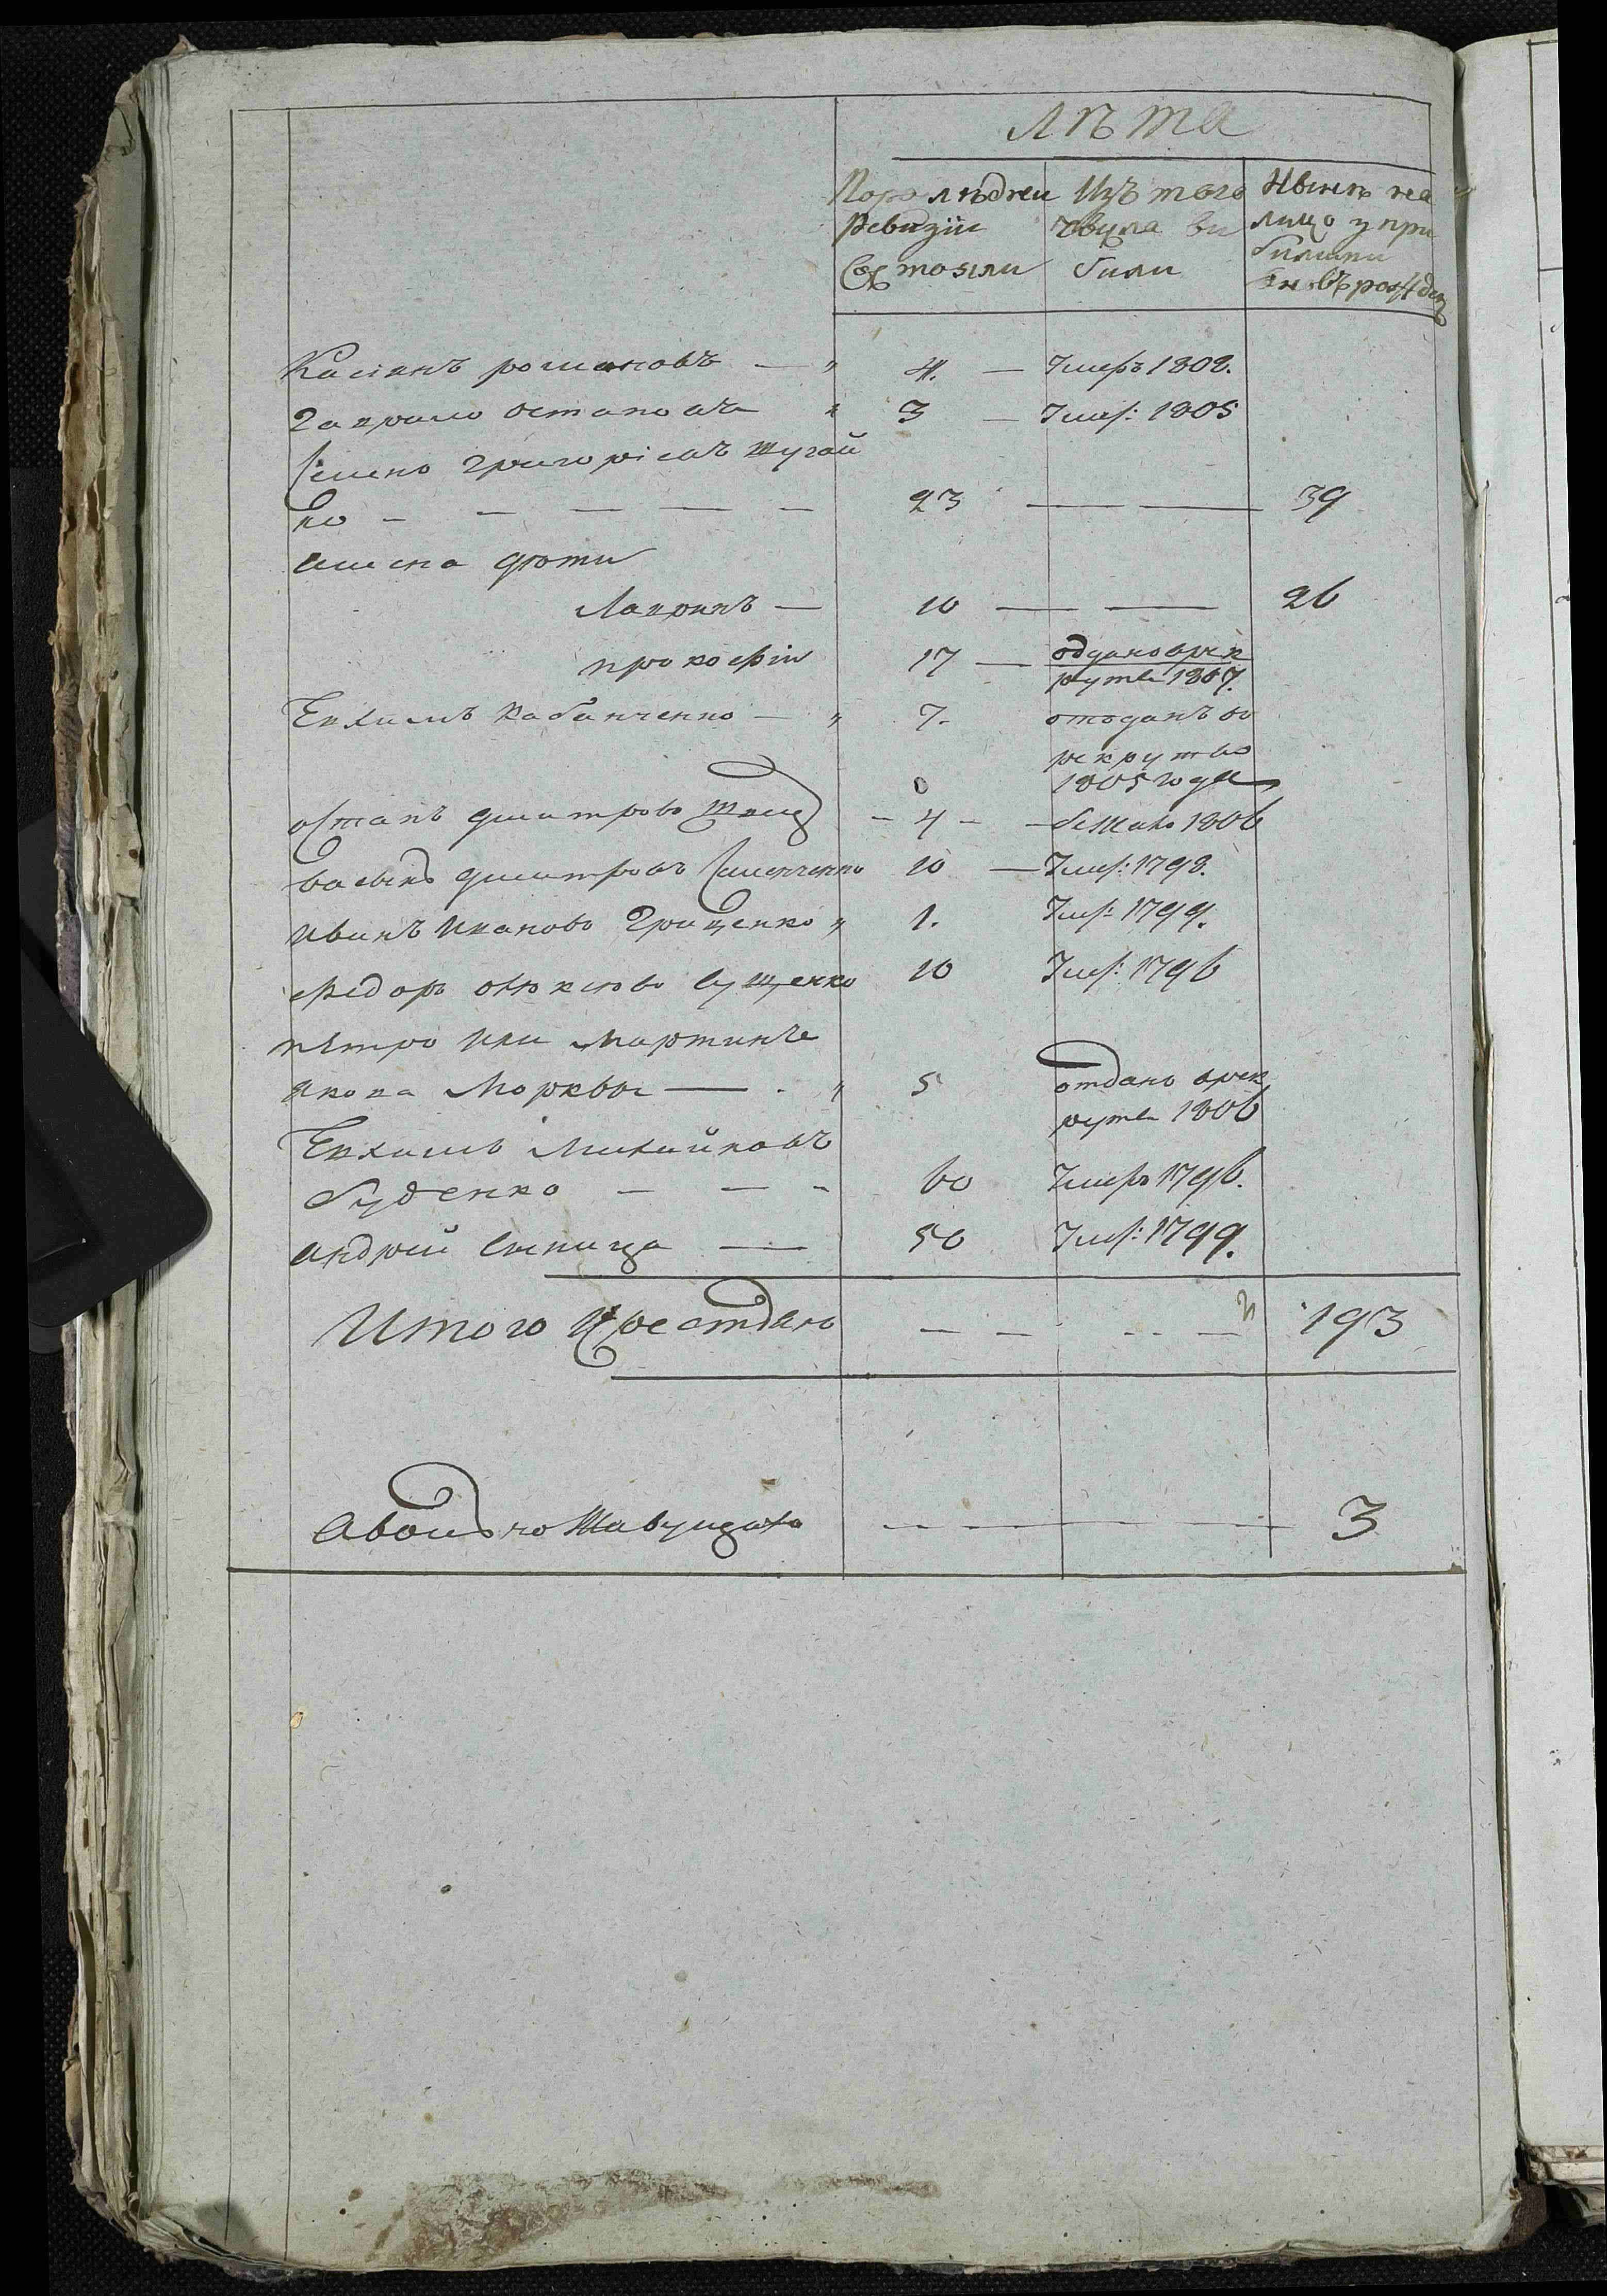 Лѣта
По последнеи Ревизіи Состояли
Изъ того числа выбыли
Нынѣ на лицо с прибылыми
Касіянъ романовъ — " 4. — Умеръ 1802.
Гаврило остаповъ " 3 — Умер: 1805
Семенъ григоріевъ шугай
ко — — — — — 23 — — 39
Семена дѣти
Лавринъ — 10 — — 26
прокофіи 17 — отданъ врек
руты 1807.
Евхимъ кабанченко — " 7. отоданъ во
рекрутво
1805 года
Остапъ дмитровъ — 4 — — бежалъ 1806
Василь дмитровъ Симченко 10 — Умер: 1798.
Иванъ Ивановъ Грищенко " 1. Умер: 1799.
Федоръ Сущенко 10 Умер: 1796
петро или мартинъ
якова Морквы — " 5 отданъ врек
руты 1806
Евхимъ Михайловъ
буденко — — — 60 Умеръ 1796.
андрей Синица — 50 Умер: 1799.
Итого Крестянъ — — — — — 193
3